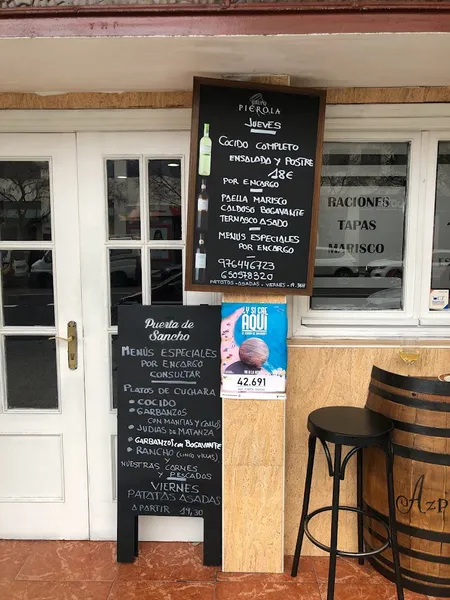 PIEROLA
JUEVES
COCIDO COMPLETO
ENSALADA Y POSTRE
18€
POR ENCARGO
PAELLA MARISCO
CALDOSO BOGAVANTE
TERNASCO ASADO
MENUS ESPECIALES
POR ENCARGO
976446723
650578320
PATATAS-ASADAS-VIERNES-19.30H
RACIONES
TAPAS
MARISCO
Puerta de
Sancho
MENÚS ESPECIALES
POR ENCARGO
CONSULTAR
PLATOS DE CUCHARA
• COCIDO
• GARBANZOS
CON MANITAS Y CALLOS
• JUDIAS DE MATANZA
• GARBANZOS CON BOGAVANTE
• RANCHO (CINCO VILLAS)
Y
NUESTRAS CARNES
Y PESCADOS
VIERNES
PATATAS ASADAS
A PARTIR 19,30
¿Y SI CAE
AQUÍ
42.691